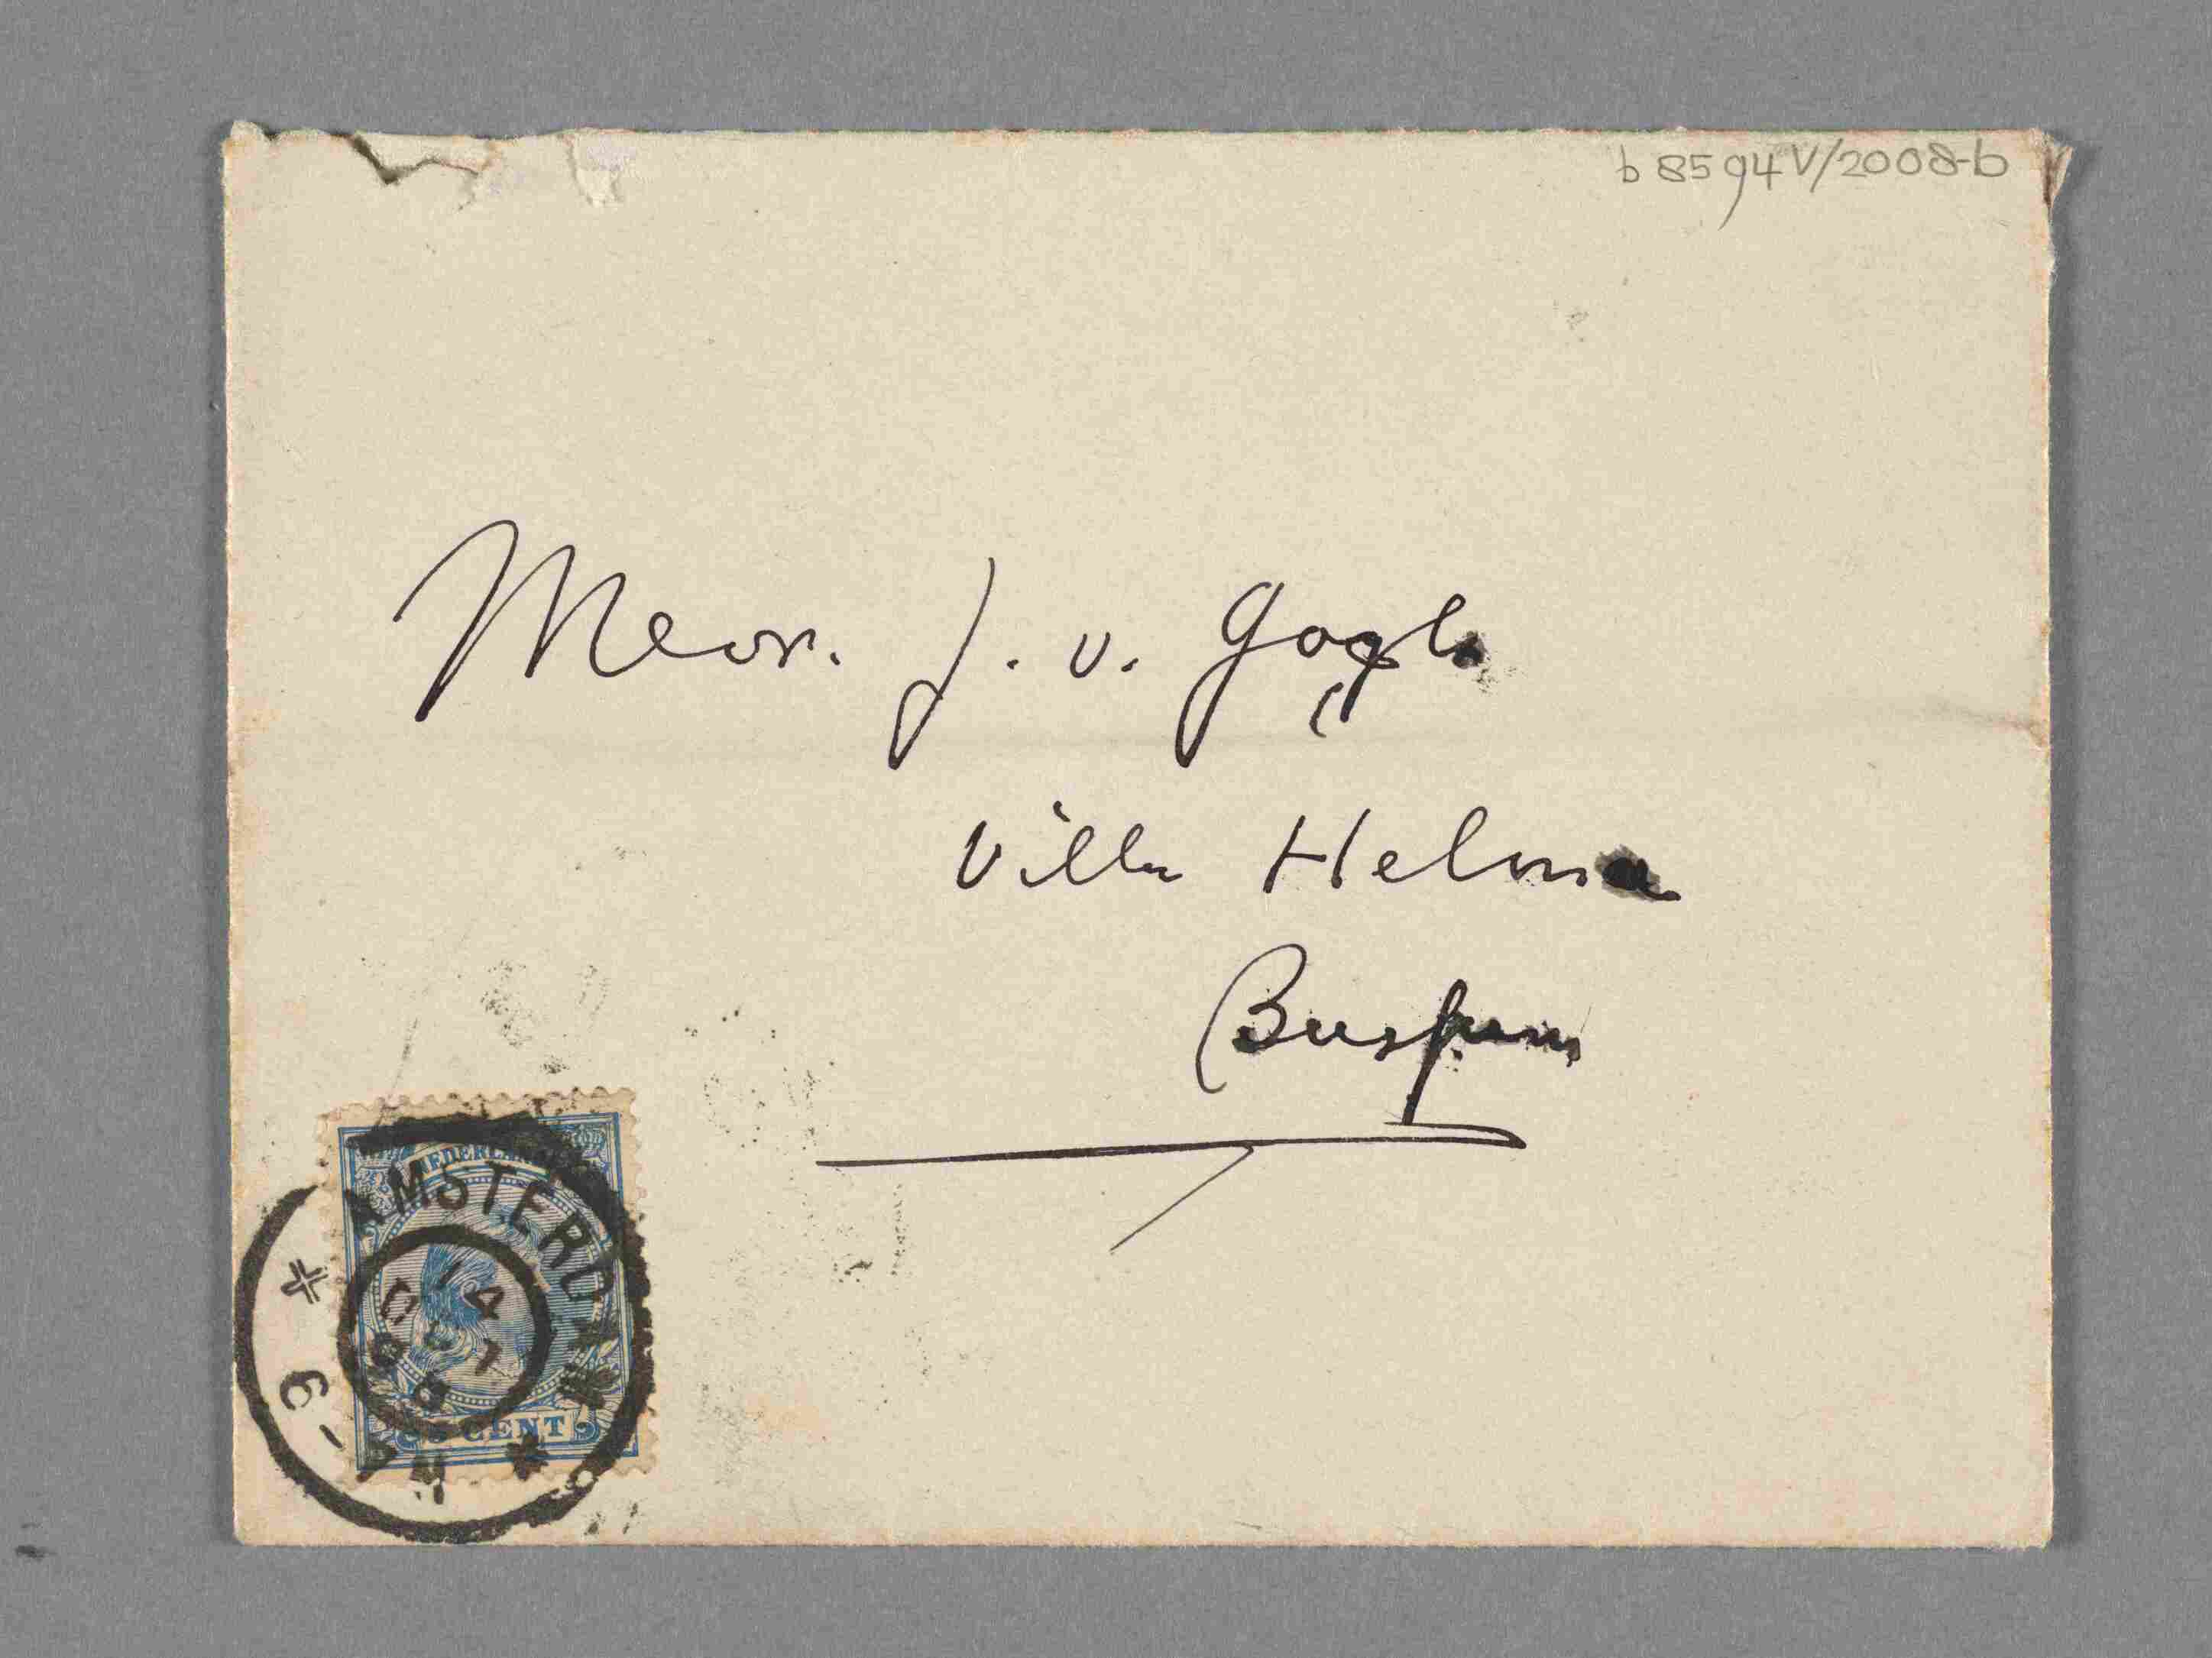 b 8594 V/2008-b
Mevr. J. v. Gogh
Villa Helma
Bussum
NEDERLAND
AMSTERDAM
5 CENT